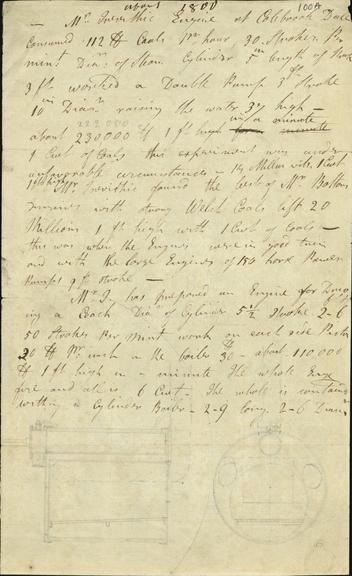 about 1800
100A
— Mr. Trevithic Engine at Colebrook Dale
Consumed 112 lb Coals Pr hour 30 Strokes Pr
mint Diar. of Steam Cylinder 7 in length of Stroke
3 ft worked a Double Pump 3 ft Stroke
10 in Diar. raising the water 37 high —
about 230000 lb 1 ft high in a minute
1 Cwt of Coals this experiment was under
unfavorable circumstances — 14 Million with 1 Cwt
Mr Trevithic found the best of Mr Boltons
engines with strong Welch Coals lift 20
Millions 1 ft high with 1 Cwt of Coals —
this was when the Engines were in good turn
and with the large Engines of 154 horse Power
Pumps 9 ft stroke —
Mr T. has prepared an Engine for Draw
ing a Coach Diar of Cylinder 5 1/2 Stroke 2-6
50 Strokes Per Mint work on each side Piston
20 lb Pr inch in the boiler 30 about 110,000
lb 1 ft high in a minute The whole Eng
fire and all is 6 Cwt. The whole is contained
within a Cylinder Boiler - 2-9 long. 2-6 Diam